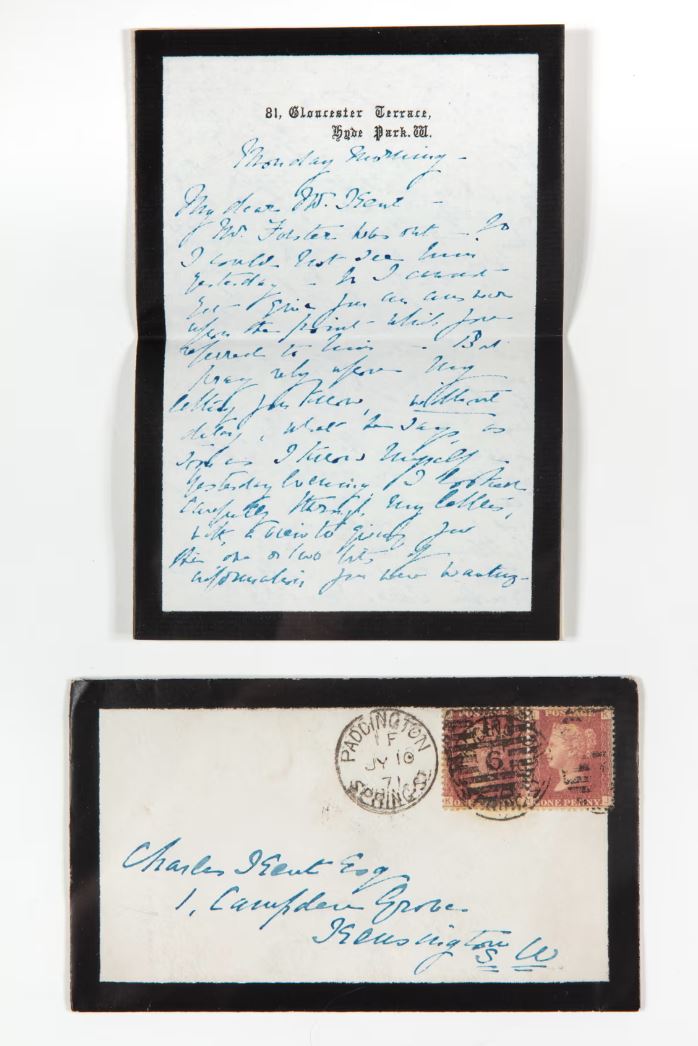 81, Gloucester Terrace,
Hyde Park. W.
Monday Morning -
My dear Mr. Kent -
Mr. Forster was out - So
I could not see him
yesterday - & I cannot
yet give you an answer
upon the point which you
referred to him - But
pray rely upon my
letting you know, without
delay, what he says as
soon as I know myself -
Yesterday Evening I looked
carefully through my letters,
with a view to giving you
the one or two bits of
information you were wanting -
PADDINGTON
1 F
JY 10
71
SPRING-ST
POSTAGE
6
POSTAGE
ONE PENNY
Charles Kent Esq
1, Campden Grove
Kensington
S W